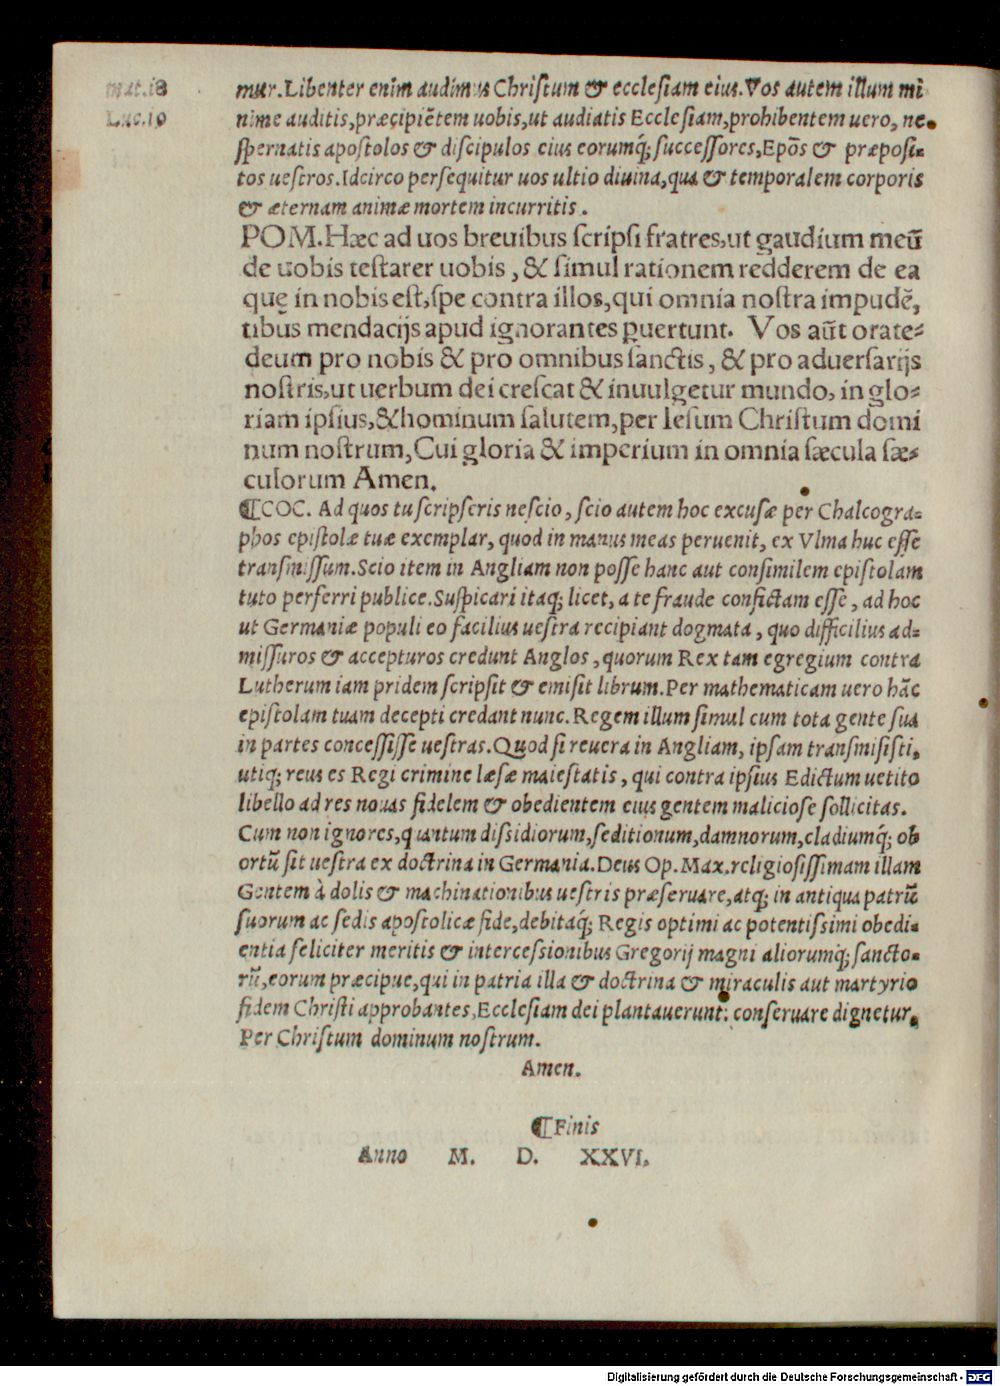 mat.18
Luc.10
mur. Libenter enim audimus Chriſtum & eccleſiam eius. Vos autem illum mi
nime auditis, præcipiētem uobis, ut audiatis Eccleſiam, prohibentem uero, ne
ſpernatis apoſtolos & diſcipulos eius eorumq́; ſucceſſores, Epōs & præpoſi-
tos ueſtros. Idcirco perſequitur uos ultio diuina, qua & temporalem corporis
& æternam animæ mortem incurritis.
POM. Hæc ad uos breuibus ſcripſi fratres, ut gaudium meū
de uobis teſtarer uobis, & ſimul rationem redderem de ea
quę in nobis eſt, ſpe contra illos, qui omnia noſtra impudē,
tibus mendacijs apud ignorantes puertunt. Vos aūt orate-
deum pro nobis & pro omnibus ſanctis, & pro aduerſarijs
noſtris, ut uerbum dei creſcat & inuulgetur mundo, in glo-
riam ipſius, & hominum ſalutem, per Ieſum Chriſtum domi
num noſtrum, Cui gloria & imperium in omnia ſæcula ſæ-
culorum Amen.
¶COC. Ad quos tu ſcripſeris neſcio, ſcio autem hoc excuſæ per Chalcogra-
phos epiſtolæ tuæ exemplar, quod in manus meas peruenit, ex Vlma huc eſſe
tranſmiſſum. Scio item in Angliam non poſſe hanc aut conſimilem epiſtolam
tuto perferri publice. Suſpicari itaq; licet, a te fraude confictam eſſe, ad hoc
ut Germaniæ populi eo facilius ueſtra recipiant dogmata, quo difficilius ad-
miſſuros & accepturos credunt Anglos, quorum Rex tam egregium contra
Lutherum iam pridem ſcripſit & emiſit librum. Per mathematicam uero hāc
epiſtolam tuam decepti credant nunc. Regem illum ſimul cum tota gente ſua
in partes conceſſiſſe ueſtras. Quod ſi reuera in Angliam, ipſam tranſmiſiſti,
utiq; reus es Regi crimine læſæ maieſtatis, qui contra ipſius Edictum uetito
libello ad res nouas fidelem & obedientem eius gentem malicioſe ſollicitas.
Cum non ignores, quantum diſſidiorum, ſeditionum, damnorum, cladiumq́; ob
ortū ſit ueſtra ex doctrina in Germania. Deus Op. Max. religioſiſſimam illam
Gentem à dolis & machinationibus ueſtris præſeruare, atq; in antiqua patrū
ſuorum ac ſedis apoſtolicæ fide, debitaq́; Regis optimi ac potentiſsimi obedi-
entia feliciter meritis & interceſsionibus Gregorij magni aliorumq́; ſancto-
rū, eorum præcipue, qui in patria illa & doctrina & miraculis aut martyrio
fidem Chriſti approbantes, Eccleſiam dei plantauerunt: conſeruare dignetur,
Per Chriſtum dominum noſtrum.
Amen.
¶Finis
Anno M. D. XXVI.
Digitalisierung gefördert durch die Deutsche Forschungsgemeinschaft - DFG